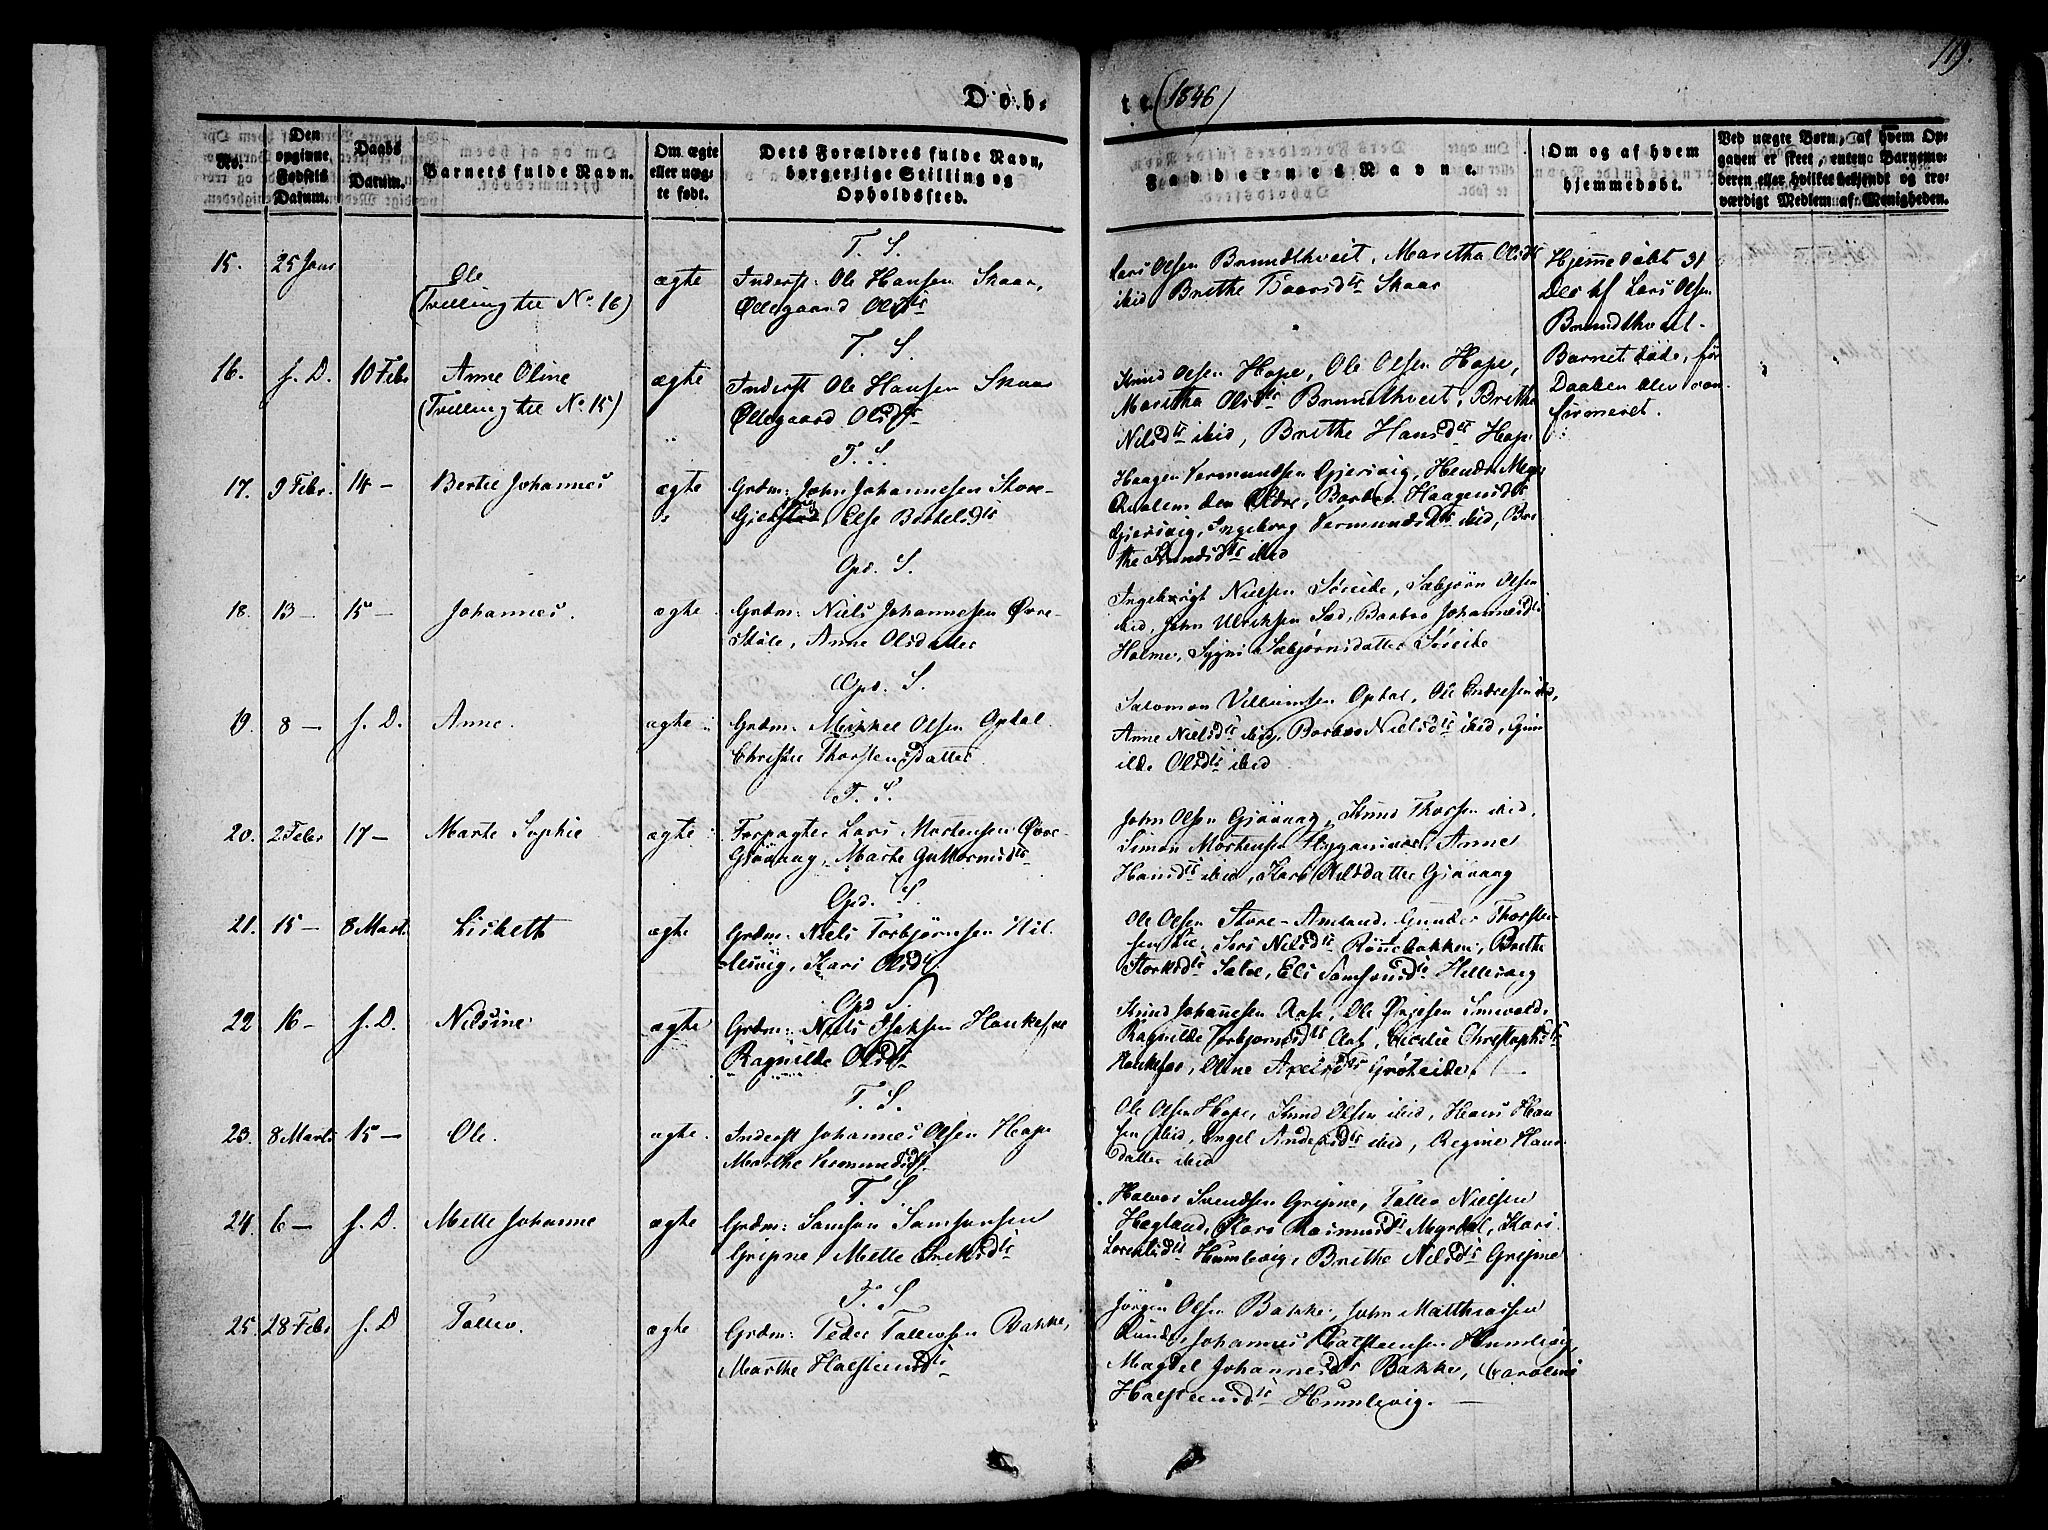 119.
Døb-
te (1846)
No.
Den
opgivne
Fødsels
Datum.
Daabs
Datum.
Barnets fulde Navn.
Om ægte
eller uæg-
te født.
Dets Forældres fulde Navn,
borgerlige Stilling og
Opholdssted.
Faddernes Navne.
Om og af hvem
hjemmedøbt.
Ved uægte Børn, af hvem Op-
gaven er skeet, enten Barnemo-
deren eller hvilket bekjendt og tro-
værdigt Medlem af Menigheden.
T. S.
15. 25 Janr
Ole
(Tvilling til No. 16)
ægte
Inderst: Ole Hansen Skaar,
Øllegaard Olsdtr
Lars Olsen Brundthveit, Maritha Olsdtr
ibid Brithe Skaar
Hjemmedøbt 31
Lars Olsen
Brundthveit.
Barnet døde, før
Daaben blev con-
firmeret.
T. S.
16. f. D. 10 Febr
Anne Oline
(Tvilling til No. 15)
ægte
Inderst Ole Hansen Skaar
Øllegaard Olsdtr
Knud Olsen Hope, Ole Olsen Hope,
Maritha Olsdtr Brundthveit, Brithe
Nilsdtr ibid, Brithe Hansdtr Hope
T. S.
17. 9 Febr. 14 –
Bertel Johannes
ægte
Grdm: John Johannesen Store-
Else Bertelsdtr
Haagen Vermundsen Gjersvig,
den Ældre, Haagensdtr
Gjersvig, Ingeborg Vermundsdtr ibid, Bri-
the Knudsdtr ibid
Opd. S.
18. 13 – 15 –
Johannes.
ægte
Grdm: Niels Johannesen Øvre-
Skåle, Anne Olsdatter
Ingebrigt Nielsen Søreide, Sæbjørn Olsen
ibid, John Ulriksen Barbro Johannesdtr
Holme, Sygni Sæbjørnsdatter Søreide
Opd. S.
19. 8 – f. D.
Anne.
ægte
Grdm: Mikkel Olsen Opdal
Christie Thorstensdatter
Salomon Villumsen Opdal, Ole Endresen ibid,
Anne Nielsdtr ibid, Barbro Nielsdtr ibid, Gun-
ilde Olsdtr ibid
T. S.
20. 2 Febr 17 –
Marte Sophie
ægte
Forpagter Lars Mortensen Øvre-
Gjøvaag, Marte Guttormsdtr
John Olsen Gjøvaag, Knud Thorsen ibid,
Simon Mortensen Anne
Hansdtr ibid, Kari Nilsdatter Gjøvaag
Opd. S.
21. 15 – 8 Mart.
Lisbeth
ægte
Grdm: Niels Torbjørnsen Hil-
-lesvig, Kari Olsdtr
Ole Olsen Store-Amland, Gunder Thorsten-
sen Lie, Nilsdtr Rønnebakken, Brithe
Storksdtr Sælve, Eli Samsonsdtr Hillesvig
Opd S.
22 16 – f. D.
Nilsine
ægte
Grdm: Niels Isaksen Haukefær
Ragnilde Olsdtr
Knud Johannesen Aase, Ole
Ragnilde Torbjørnsdtr Cicilie Christophsdtr
Haukefær, Oline Axelsdtr
T. S.
23. 8 Marts 15 –
Ole.
ægte.
Inderst Johannes Olsen Hope
Marthe Vermundsdtr
Ole Olsen Hope, Knud Olsen ibid, Hans Han-
sen ibid, Engel Andersdtr ibid, Regine Hans-
datter ibid
T. S.
24. 6 – f. D.
Mette Johanne
ægte
Grdm: Samson Samsonsen
Gripne, Mette Eriksdtr
Halvor Svendsen Gripne, Tollev Nielsen
Hægland, Kari Rasmusdtr Myrdal, Kari
Larsdtr Humlevig, Brithe Nilsdtr Gripne
T. S
25. 28 Febr f. D
Tollev.
ægte
Grdm: Peder Tollevsen Bakke,
Marthe Halsteinsdtr
Jørgen Olsen Bakke, John Matthiassen
Johannes Halsteinsen Humlevig,
Magdel Johannesdtr Bakke, Caroline
Halsteinsdtr Humlevig. –